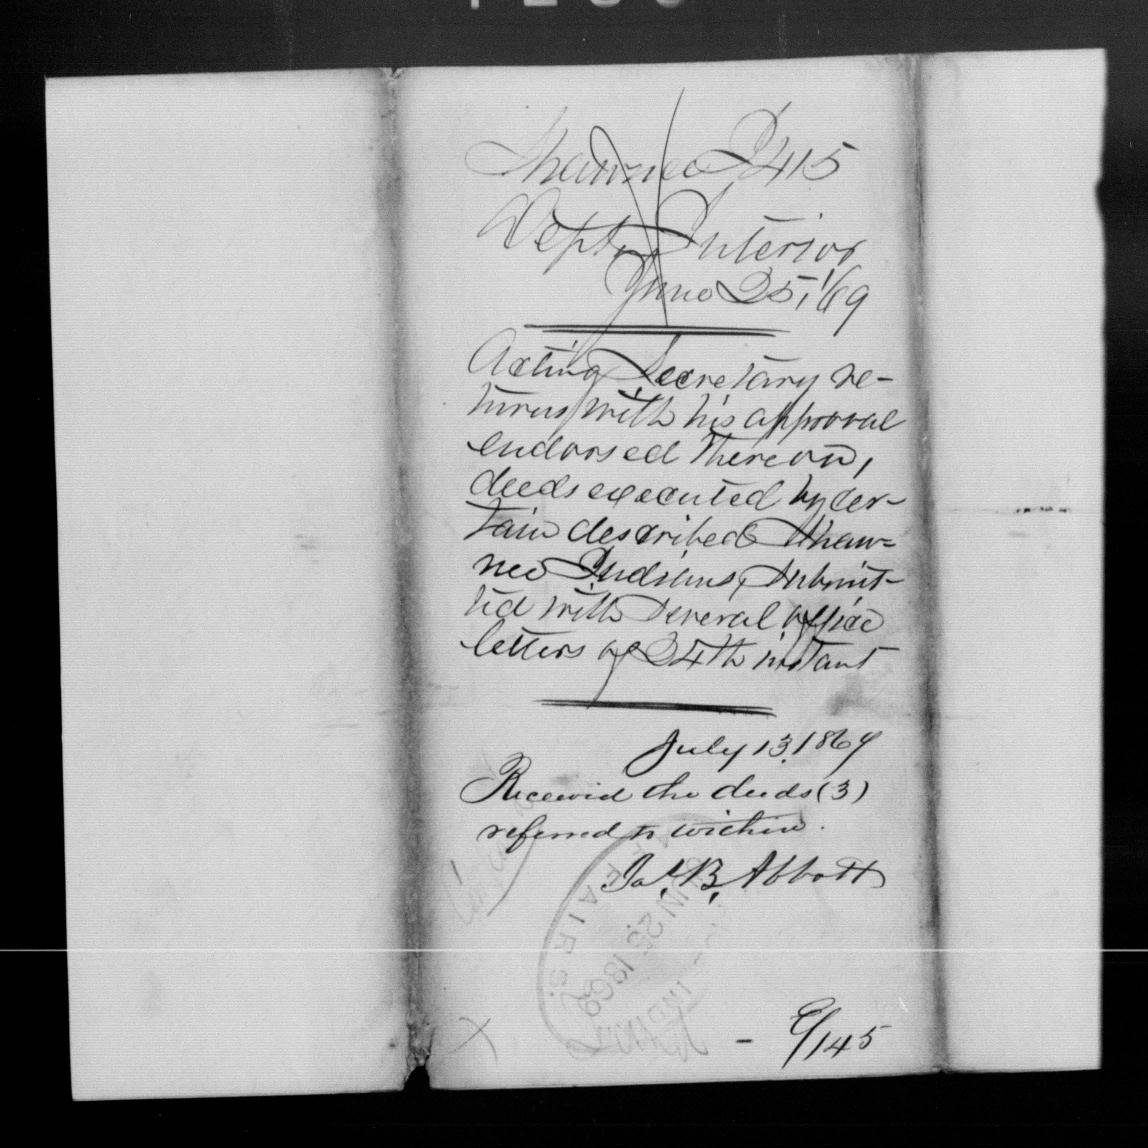 Shawnee I 415
Dept. Interior
June 25, '69
Acting Secretary re-
turns with his approval
endorsed thereon,
deeds executed by cer-
tain described Shaw-
nee Indians, submit-
ted with several office
letters of 24th instant
July 13, 1869
Received the deeds (3)
referred to within.
Jas. B. Abbott
AFFAIRS.
JUN 25 1869
INDIAN
- E/145